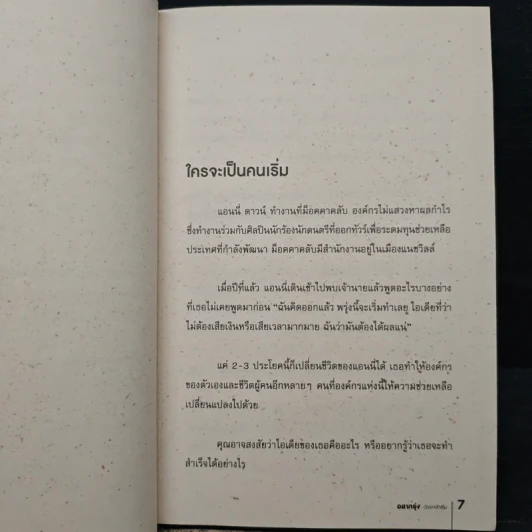 ใครจะเป็นคนเริ่ม
แอนนี่ ดาวน์ ทำงานที่ม็อคคาคลับ องค์กรไม่แสวงหาผลกำไร
ซึ่งทำงานร่วมกับศิลปินนักร้องนักดนตรีที่ออกทัวร์เพื่อระดมทุนช่วยเหลือ
ประเทศที่กำลังพัฒนา ม็อคคาคลับมีสำนักงานอยู่ในเมืองแนชวิลล์
เมื่อปีที่แล้ว แอนนี่เดินเข้าไปพบเจ้านายแล้วพูดอะไรบางอย่าง
ที่เธอไม่เคยพูดมาก่อน "ฉันคิดออกแล้ว พรุ่งนี้จะเริ่มทำเลยู ไอเดียที่ว่า
ไม่ต้องเสียเงินหรือเสียเวลามากมาย ฉันว่ามันต้องได้ผลแน่"
แค่ 2-3 ประโยคนี้ก็เปลี่ยนชีวิตของแอนนี่ได้ เธอทำให้องค์กร
ของตัวเองและชีวิตผู้คนอีกหลายๆ คนที่องค์กรแห่งนี้ให้ความช่วยเหลือ
เปลี่ยนแปลงไปด้วย
คุณอาจสงสัยว่าไอเดียของเธอคืออะไร หรืออยากรู้ว่าเธอจะทำ
สำเร็จได้อย่างไร
อยากรุ่ง ต้องกล้าเริ่ม 7